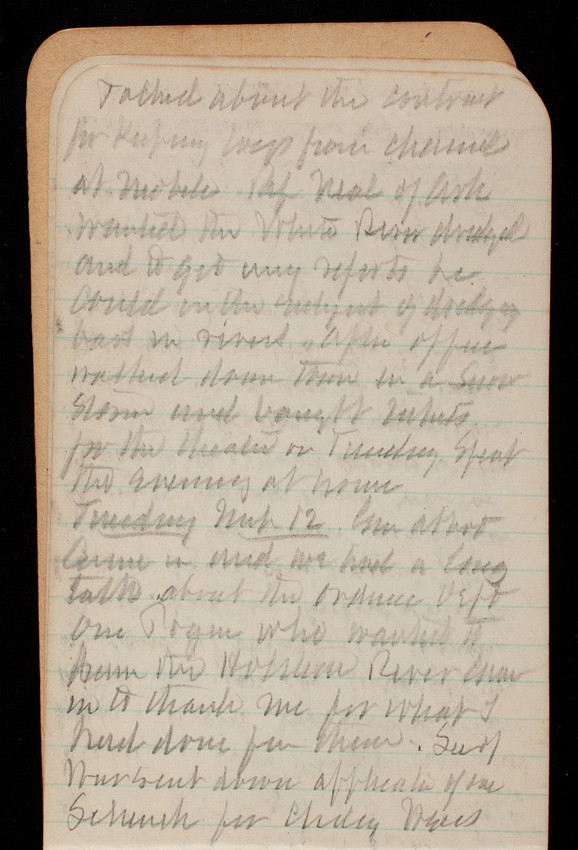 Talked about the contract
for keeping logs from channel
at Mobile. Rep Neal of Ark
wanted the White River dredged
and to get any reports he
could on the subject of dredging
bars in rivers. After office
walked down town in a Snow
Storm and bought tickets
for the theater on Tuesday. Spent
the evening at home
Tuesday Mch 12. Gen
came in and we had a long
talk about the ordnance Dept
One Pogue who wanted to
the Holston River came
in to thank me for what I
had done for them. Secy
War sent down of one
Schenck for Chicy